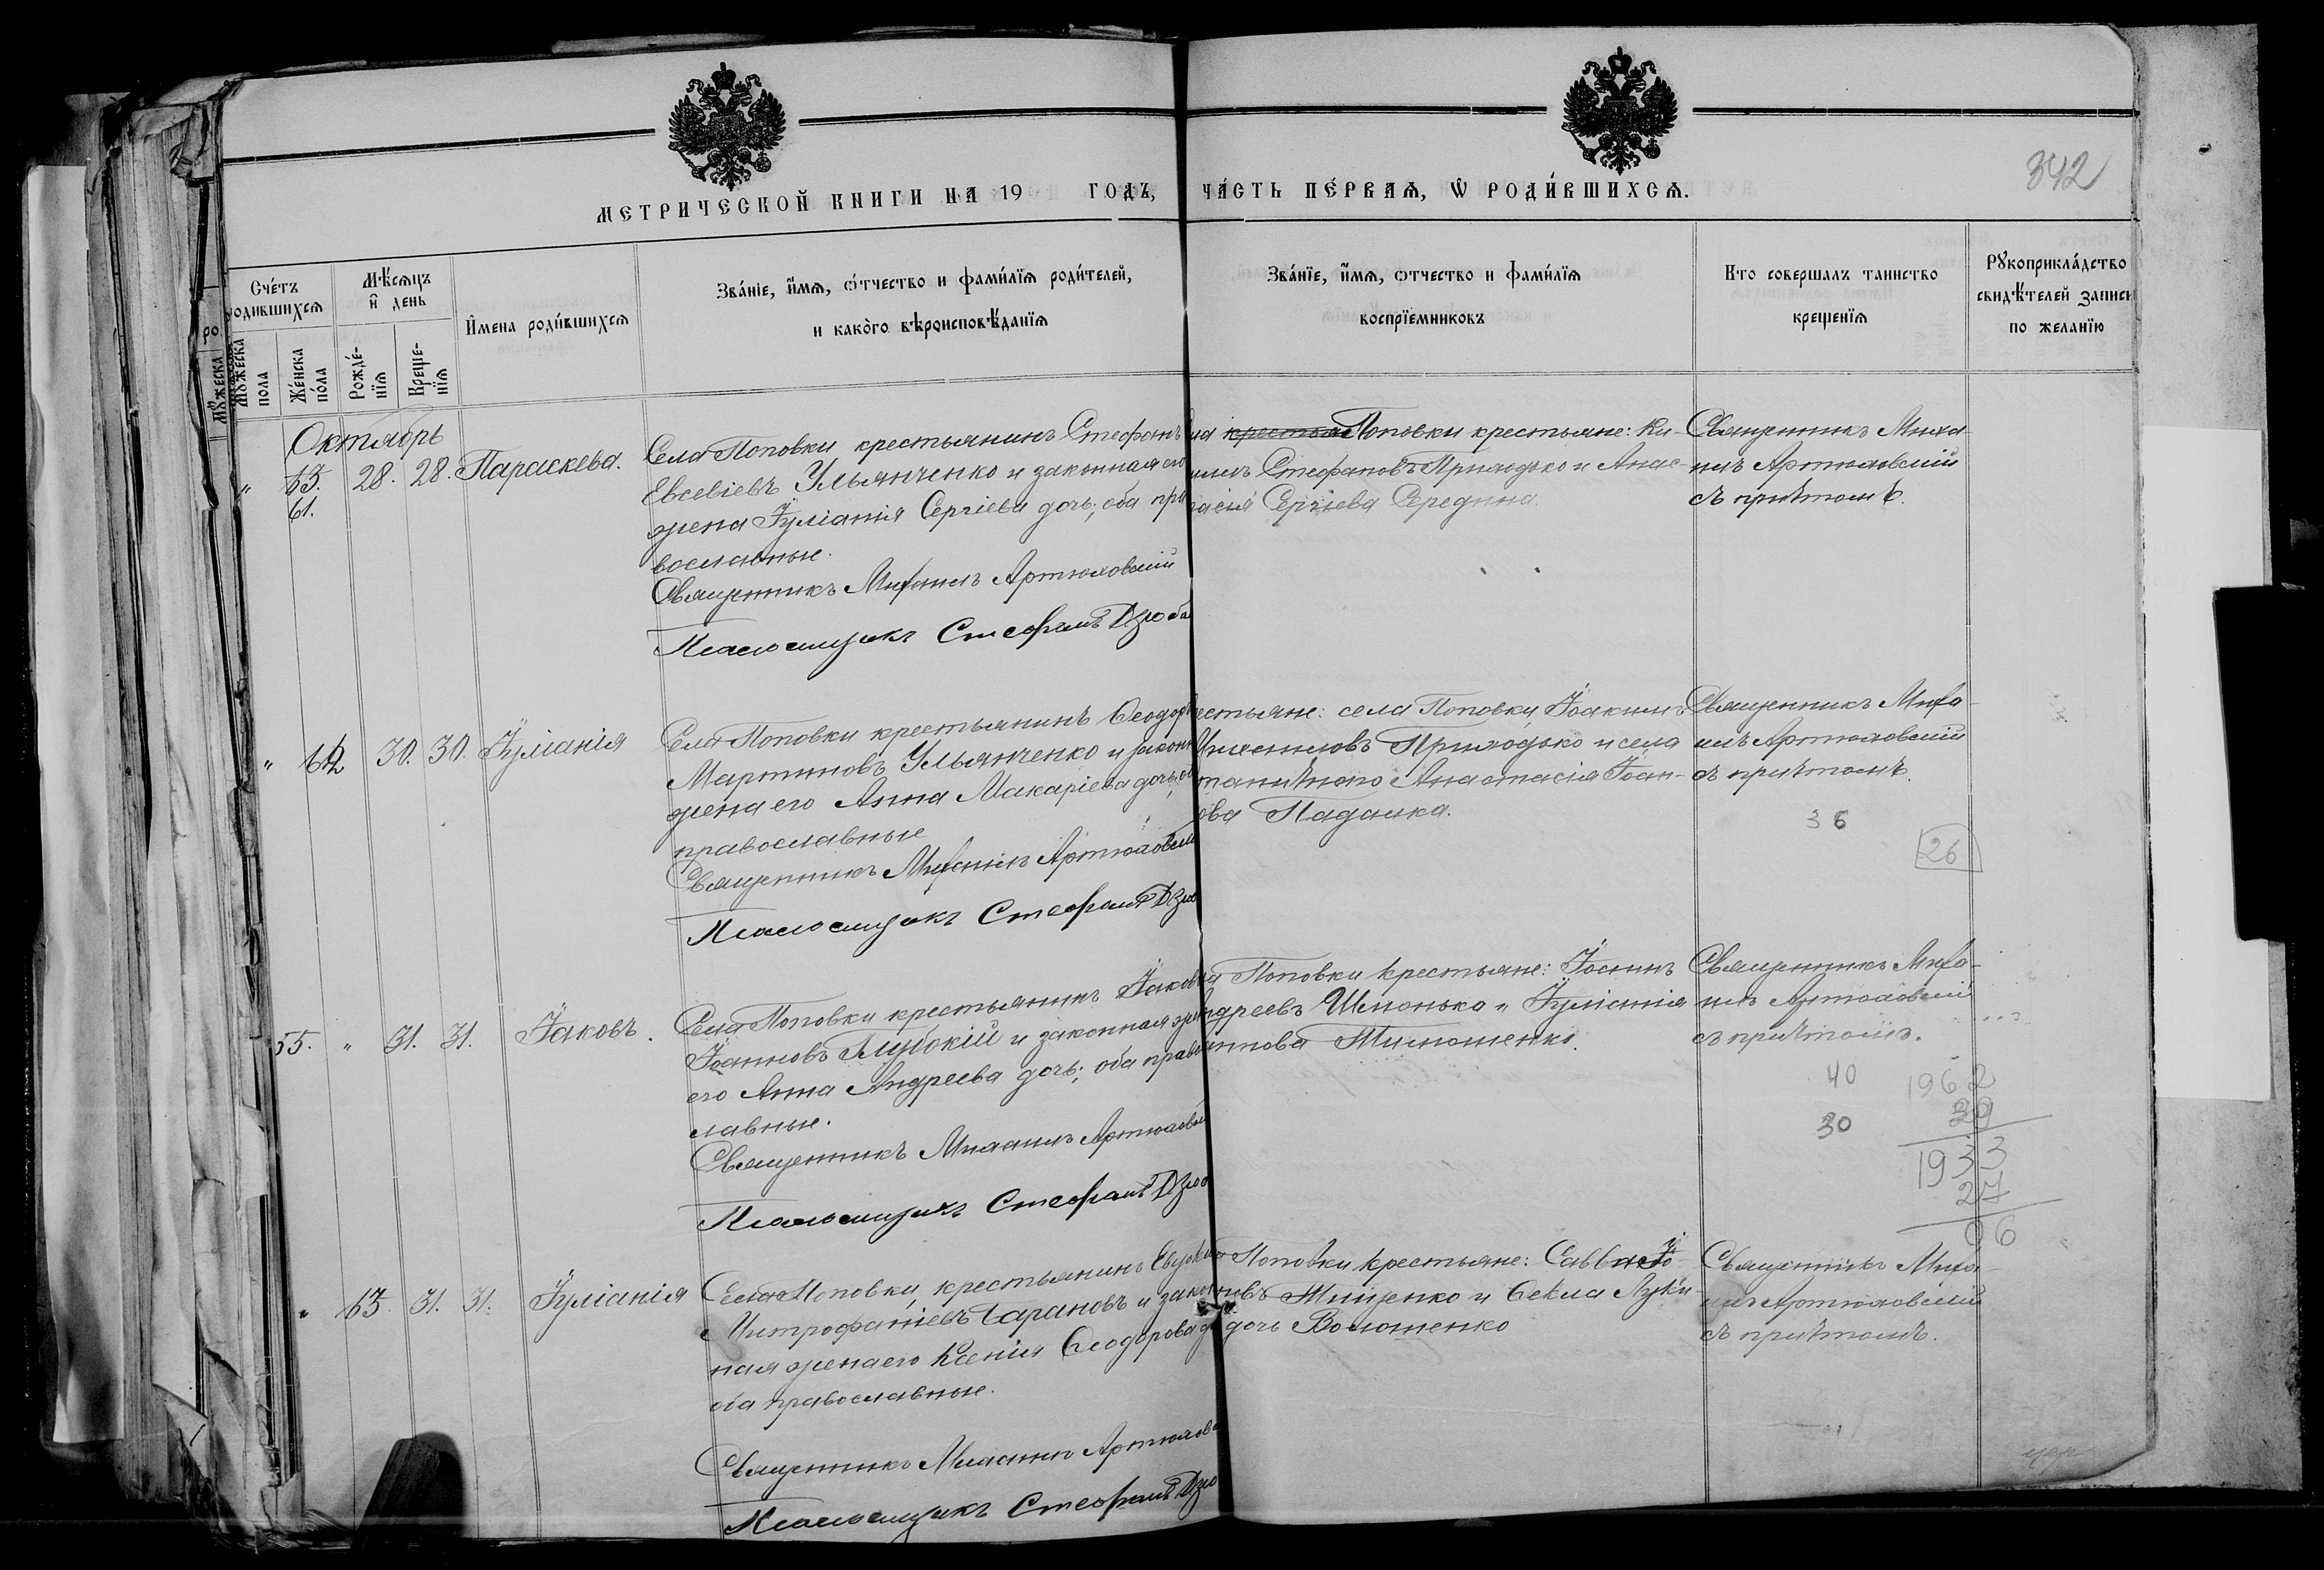 342
МЕТРИЧЕСКОЙ КНИГИ НА 19 ГОДЪ, ЧА́СТЬ ПЕ́РВАѦ, Ѡ҆ РОДИ́ВШИХСѦ.
Сче́тъ родившихсѧ
Мꙋжеска пола
Же́нска по́ла
Мѣ́сѧцъ и҆ день
Рожде́нїѧ
Креще́нїѧ
И҆мена роди́вшихсѧ
Зва́нїе, и҆́мѧ, ѻ҆́тчество и фами́лїѧ роди́телей,
и какòго вѣроисповѣ́данїѧ
Зва́нїе, и҆́мѧ, ѻтчество и фами́лїѧ
воспрїемниковъ
Кто совершалъ таинство
крещенїѧ
Рꙋкоприкла́дство
свидѣ́телей записи
по желанїю
Октябрь
" 53. 28. 28. Параскева.
61.
Села Поповки крестьянинъ Стефанъ
Евсевіевъ Ульянченко и законная его
жена Іуліанія Сергіева дочь; оба пра
вославные.
Священникъ Михаилъ Артюховскій
Псаломщикъ Стефанъ Дзюба
ла крестья Поповки крестьяне: Ки-
риллъ Стефановъ Приходько и Анас-
тасія Сергіева Середина.
Священникъ Миха-
илъ Артюховскій
съ причтомъ.
" 62 30. 30. Іуліанія
Села Поповки крестьянинъ Ѳеодоръ
Мартиновъ Ульянченко и законн
жена его Анна Макаріева дочь; об
православные
Священникъ Михаилъ Артюховскій
Псаломщикъ Стефанъ Дзю
естьяне: села Поповки Іоакимъ
Приходько и села
Анастасія Іоан-
ова Падалка.
Священникъ Миха-
илъ Артюховскій
съ причтомъ.
36
26
55. " 31. 31. Іаковъ.
Села Поповки крестьянинъ Іаковъ
Іоанновъ Глубокій и законная же
его Анна Андреева дочь; оба право
славные.
Священникъ Михаилъ Артюховскі
Псаломщикъ Стефанъ Дзюб
ла Поповки крестьяне: Іоаннъ
ндреевъ Шпонька и Іуліанія
Тимошенко.
Священникъ Миха-
илъ Артюховскій
съ причтомъ.
40
30
1962
29
1933
27
06
" 63. 31. 31. Іуліанія
Села Поповки, крестьянинъ Евдоки
Митрофаніевъ Чарановъ и закон
ная жена его Ксенія Ѳеодорова до
оба православные.
Священникъ Михаилъ Артюхов
Псаломщикъ Стефанъ Дзю
а Поповки крестьяне: Савва
Тищенко и Ѳекла Луки-
дочь Волошенко
Священникъ Миха-
илъ Артюховскій
съ причтомъ.